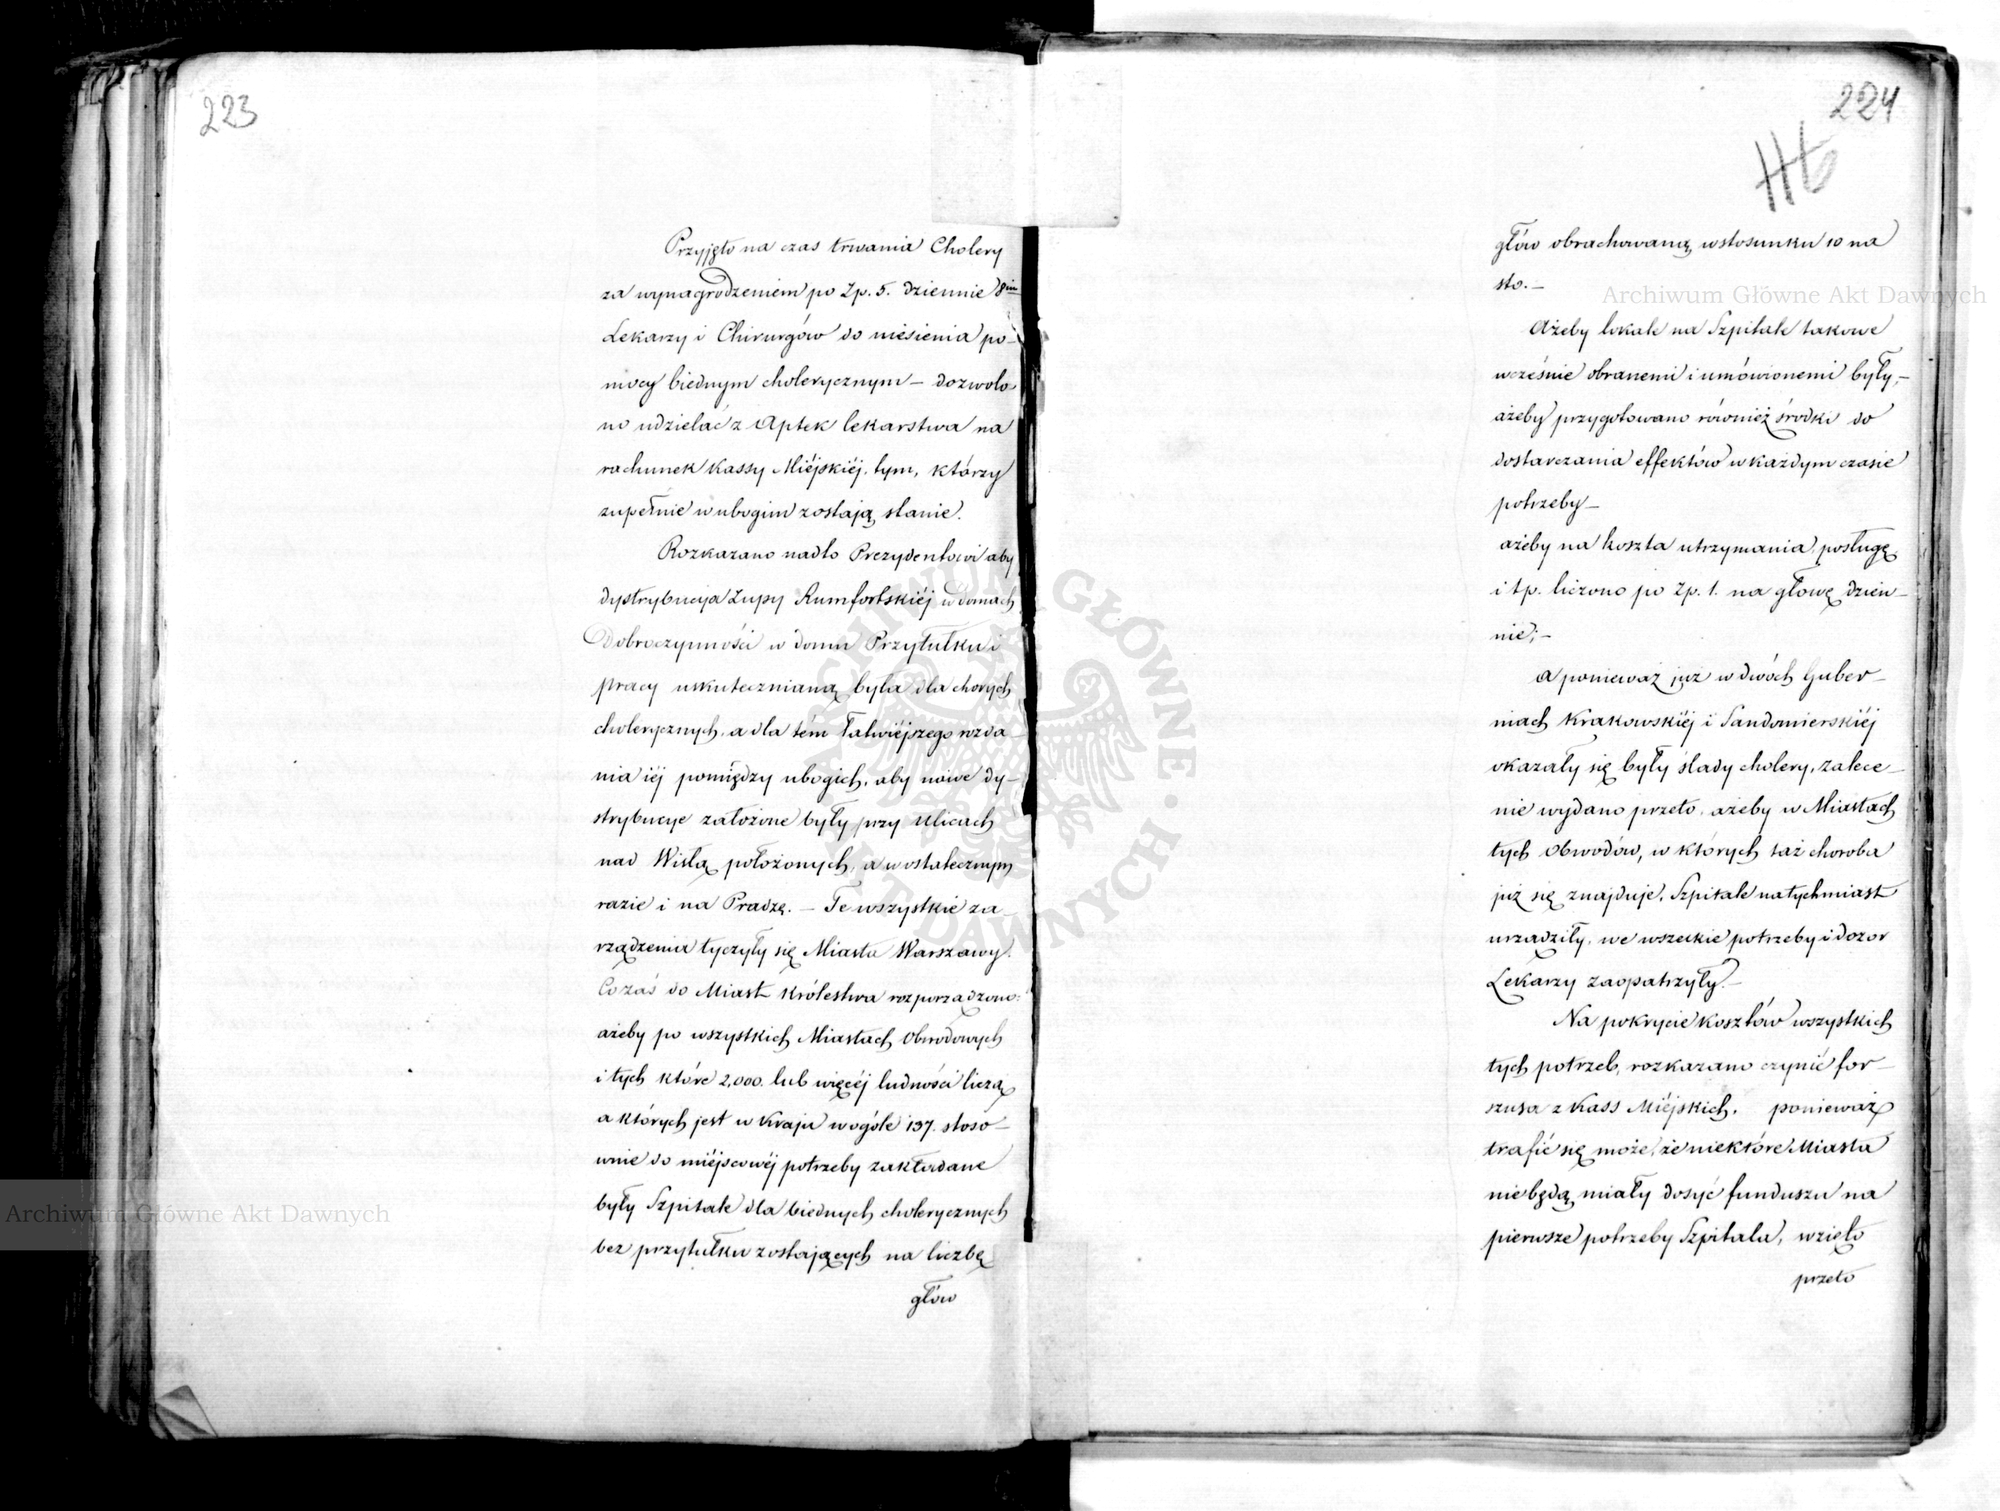 223
Przyjęto na czas trwania Cholery
za wynagrodzeniem po Zp. 5. dziennie 8iu
Lekarzy i Chirurgów do niesienia po-
mocy biednym cholerycznym – dozwolo-
no udzielać z Aptek lekarstwa na
rachunek Kassy Miéjskiéj, tym, którzy
zupełnie w ubogim zostają stanie.
Rozkazano nadto Prezydentowi aby
dystrybucya Zupy Rumfortskiéj w domach
Dobroczynności w domu Przytułku i
pracy uskutecznianą była dla chorych
cholerycznych, a dla tém łatwiéjszego rozda-
nia iéj pomiędzy ubogich, aby nowe dy-
strybucye założone były przy Ulicach
nad Wisłą położonych, a w ostatecznym
razie i na Pradze. – Te wszystkie za-
rządzenia tyczyły się Miasta Warszawy.
Co zaś do Miast Królestwa rozporządzono:
ażeby po wszystkich Miastach Obwodowych
i tych które 2,000. lub więcéj ludności liczą
a których jest w Kraju w ogóle 137. stoso-
wnie do miéjscowéj potrzeby zakładane
były Szpitale dla biednych cholerycznych
bez przytułku zostających na liczbę
głów
224
głów obrachowaną w stosunku 10 na
sto. –
Ażeby lokale na Szpitale takowe
wcześnie obranemi i umówionemi były, –
ażeby przygotowano również środki do
dostarczania effektów w każdym czasie
potrzeby –
ażeby na koszta utrzymania, posługę
i tp. liczono po Zp. 1. na głowę dzien-
nie; –
A ponieważ już w dwóch Guber-
niach Krakowskiéj i Sandomierskiéj
okazały się były ślady cholery, zalece-
nie wydano przeto, ażeby w Miastach
tych Obwodów, w których taż choroba
już się znajduje, Szpitale natychmiast
urządziły, we wszelkie potrzeby i dozor
Lekarzy zaopatrzyły. –
Na pokrycie kosztów wszystkich
tych potrzeb, rozkazano czynić for-
szusa z Kass Miéjskich, ponieważ
trafić się może, że niektóre Miasta
nie będą miały dosyć funduszu na
pierwsze potrzeby Szpitala, wzięto
przeto
Archiwum Główne Akt Dawnych
Archiwum Główne Akt Dawnych
ARCHIWUM GŁÓWNE AKT DAWNYCH